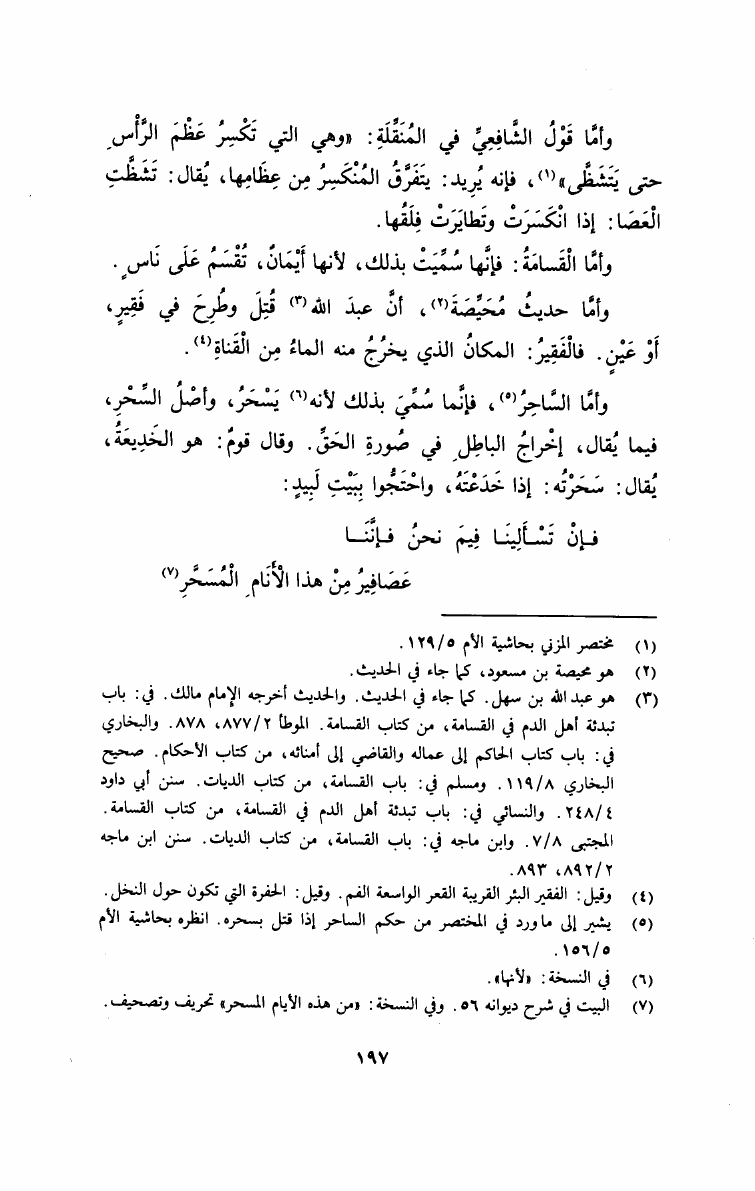 وأمَّا قَوْلُ الشَّافِعِيِّ في المُنَقِّلَةِ: «وهي التي تَكْسِرُ عَظْمَ الرَّأْسِ
حتى يَتَشَظَّى»(١)، فإنه يُرِيد: يتَفَرَّقُ المُنْكَسِرُ مِن عِظَامِها، يُقال: تَشَظَّتِ
الْعَصَا: إذا انْكَسَرَتْ وتَطايَرَتْ فِلَقُها.
وأمَّا الْقَسامَةُ: فإنَّها سُمِّيَتْ بذلك، لأنها أَيْمَانٌ، تُقْسَمُ عَلَى نَاسٍ.
وأمَّا حديثُ مُحَيِّصَةَ(٢)، أنَّ عبدَ الله(٣) قُتِلَ وطُرِحَ في فَقِيرٍ،
أَوْ عَيْنٍ. فالْفَقِيرُ: المكانُ الذي يخرُجُ منه الماءُ مِن الْقَناةِ(٤).
وأمَّا السَّاحِرُ(٥)، فإنَّما سُمِّيَ بذلك لأنه(٦) يَسْحَرُ، وأصْلُ السِّحْرِ،
فيما يُقال، إخْراجُ الباطِلِ في صُورةِ الحَقِّ. وقال قومٌ: هو الخَدِيعَةُ،
يُقال: سَحَرْتُه: إذا خَدَعْتَهُ، واحْتَجُّوا بِبَيْتِ لَبِيدٍ:
فـإنْ تَسْـأَلِينَـا فِيمَ نحنُ فـإنَّنَـا
عَصَافِيرُ مِنْ هذا الْأَنَامِ الْمُسَحَّرِ(٧)
(١) مختصر المزني بحاشية الأم ١٢٩/٥.
(٢) هو محيصة بن مسعود، كما جاء في الحديث.
(٣) هو عبد الله بن سهل. كما جاء في الحديث. والحديث أخرجه الإمام مالك. في: باب
تبدئة أهل الدم في القسامة، من كتاب القسامة. الموطأ ٨٧٧/٢، ٨٧٨. والبخاري
في: باب كتاب الحاكم إلى عماله والقاضي إلى أمنائه، من كتاب الأحكام. صحيح
البخاري ١١٩/٨. ومسلم في: باب القسامة، من كتاب الديات. سنن أبي داود
٢٤٨/٤. والنسائي في: باب تبدئة أهل الدم في القسامة، من كتاب القسامة.
المجتبى ٧/٨. وابن ماجه في: باب القسامة، من كتاب الديات. سنن ابن ماجه
٨٩٢/٢، ٨٩٣.
(٤) وقيل: الفقير البئر القريبة القعر الواسعة الفم. وقيل: الحفرة التي تكون حول النخل.
(٥) يشير إلى ما ورد في المختصر من حكم الساحر إذا قتل بسحره. انظره بحاشية الأم
١٥٦/٥.
(٦) في النسخة: «لأنها».
(٧) البيت في شرح ديوانه ٥٦. وفي النسخة: «من هذه الأيام المسحر» تحريف وتصحيف.
١٩٧